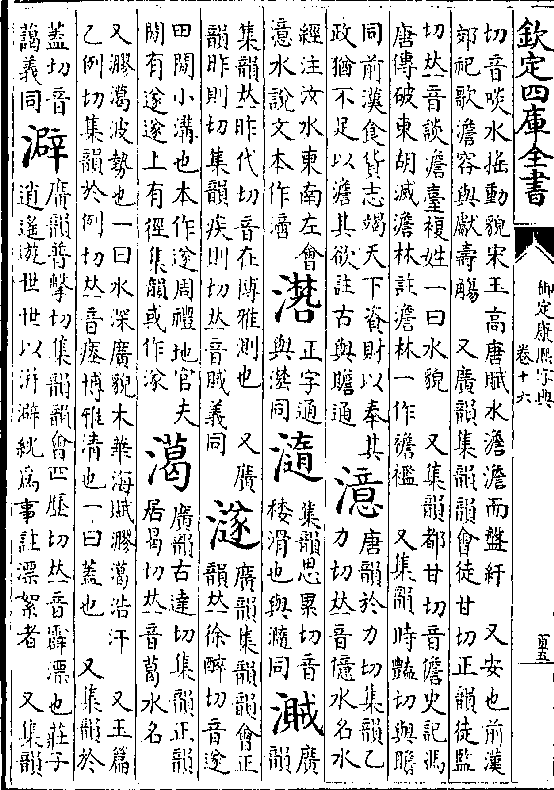 欽定四庫全書
御定康熙字典
卷十六
切音啖水搖動貌宋玉高唐賦水澹澹而盤紆 又安也前漢
郊祀歌澹容與獻壽觴 又廣韻集韻韻會徒甘切正韻徒監
切𠀤音談澹臺複姓一曰水貌 又集韻都甘切音儋史記馮
唐傳破東胡滅澹林註澹林一作襜襤 又集韻時豔切與贍
同前漢食貨志竭天下資財以奉其
政猶不足以澹其欲註古與贍通
澺
唐韻於力切集韻乙
力切𠀤音億水名水
經注汝水東南左會
澺水說文本作
正字通
集韻思累切音
棱滑也與瀡同
廣
韻
集韻𠀤昨代切音在博雅測也 又廣
韻昨則切集韻疾則切𠀤音賊義同
澻
廣韻集韻韻會正
韻𠀤徐醉切音遂
田間小溝也本作遂周禮地官夫
間有遂遂上有徑集韻或作㒸
廣韻古達切集韻正韻
居曷切𠀤音葛水名
又膠葛波勢也一曰水深廣貌木華海賦膠葛浩汗 又玉篇
乙例切集韻於例切𠀤音瘞博雅清也一曰蓋也 又集韻於
蓋切音
藹義同
澼
廣韻普擊切集韻韻會匹歷切𠀤音霹漂也莊子
逍遙遊世世以洴澼絖爲事註漂絮者 又集韻